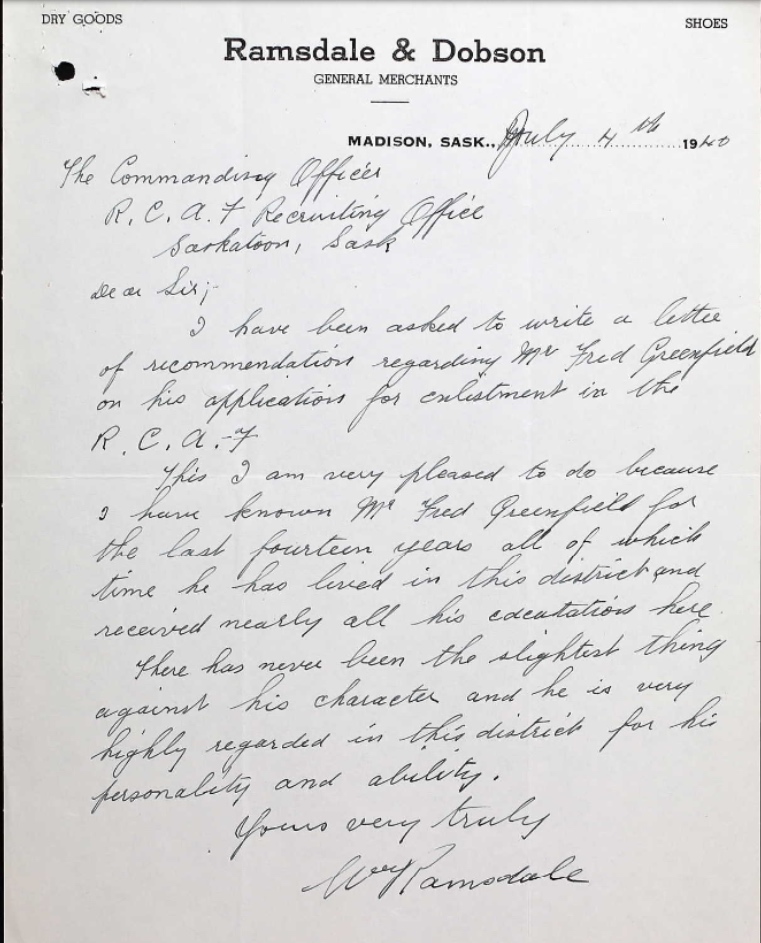 DRY GOODS
SHOES
Ramsdale & Dobson
GENERAL MERCHANTS
MADISON, SASK., July 4th 1940
The Commanding Officer
R. C. A. F Recruiting Office
Saskatoon, Sask
Dear Sir;-
I have been asked to write a letter
of recommendation regarding Mr Fred Greenfield
on his application for enlistment in the
R. C. A. F
This I am very pleased to do because
I have known Mr Fred Greenfield for
the last fourteen years all of which
time he has lived in this district and
received nearly all his education here.
There has never been the slightest thing
against his character and he is very
highly regarded in this district for his
personality and ability.
Yours very truly
Wm Ramsdale